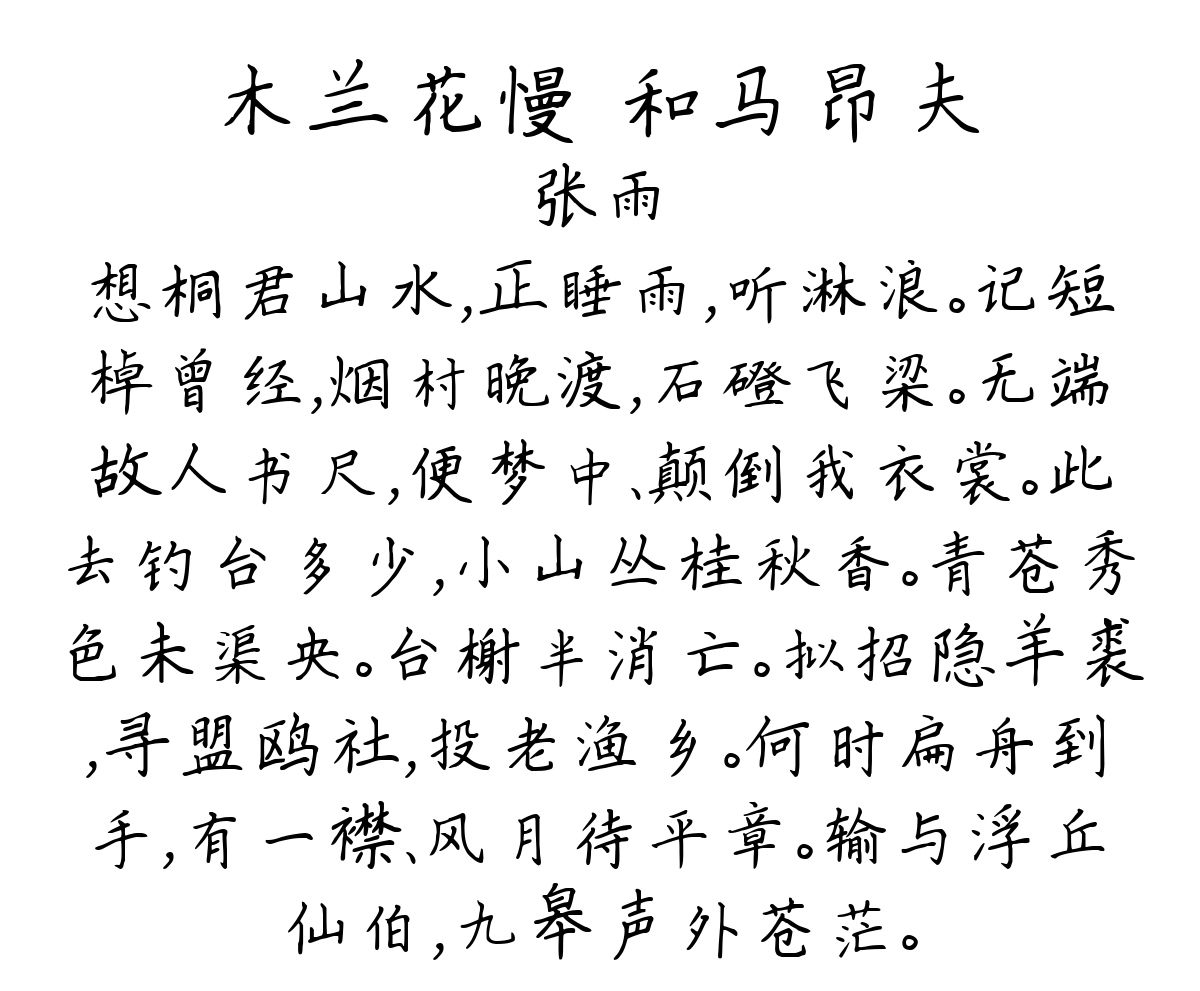 木兰花慢 和马昂夫
张雨
想桐君山水,正睡雨,听淋浪。记短
棹曾经,烟村晚渡,石磴飞梁。无端
故人书尺,便梦中、颠倒我衣裳。此
去钓台多少,小山丛桂秋香。青苍秀
色未渠央。台榭半消亡。拟招隐羊裘
,寻盟鸥社,投老渔乡。何时扁舟到
手,有一襟、风月待平章。输与浮丘
仙伯,九皋声外苍茫。